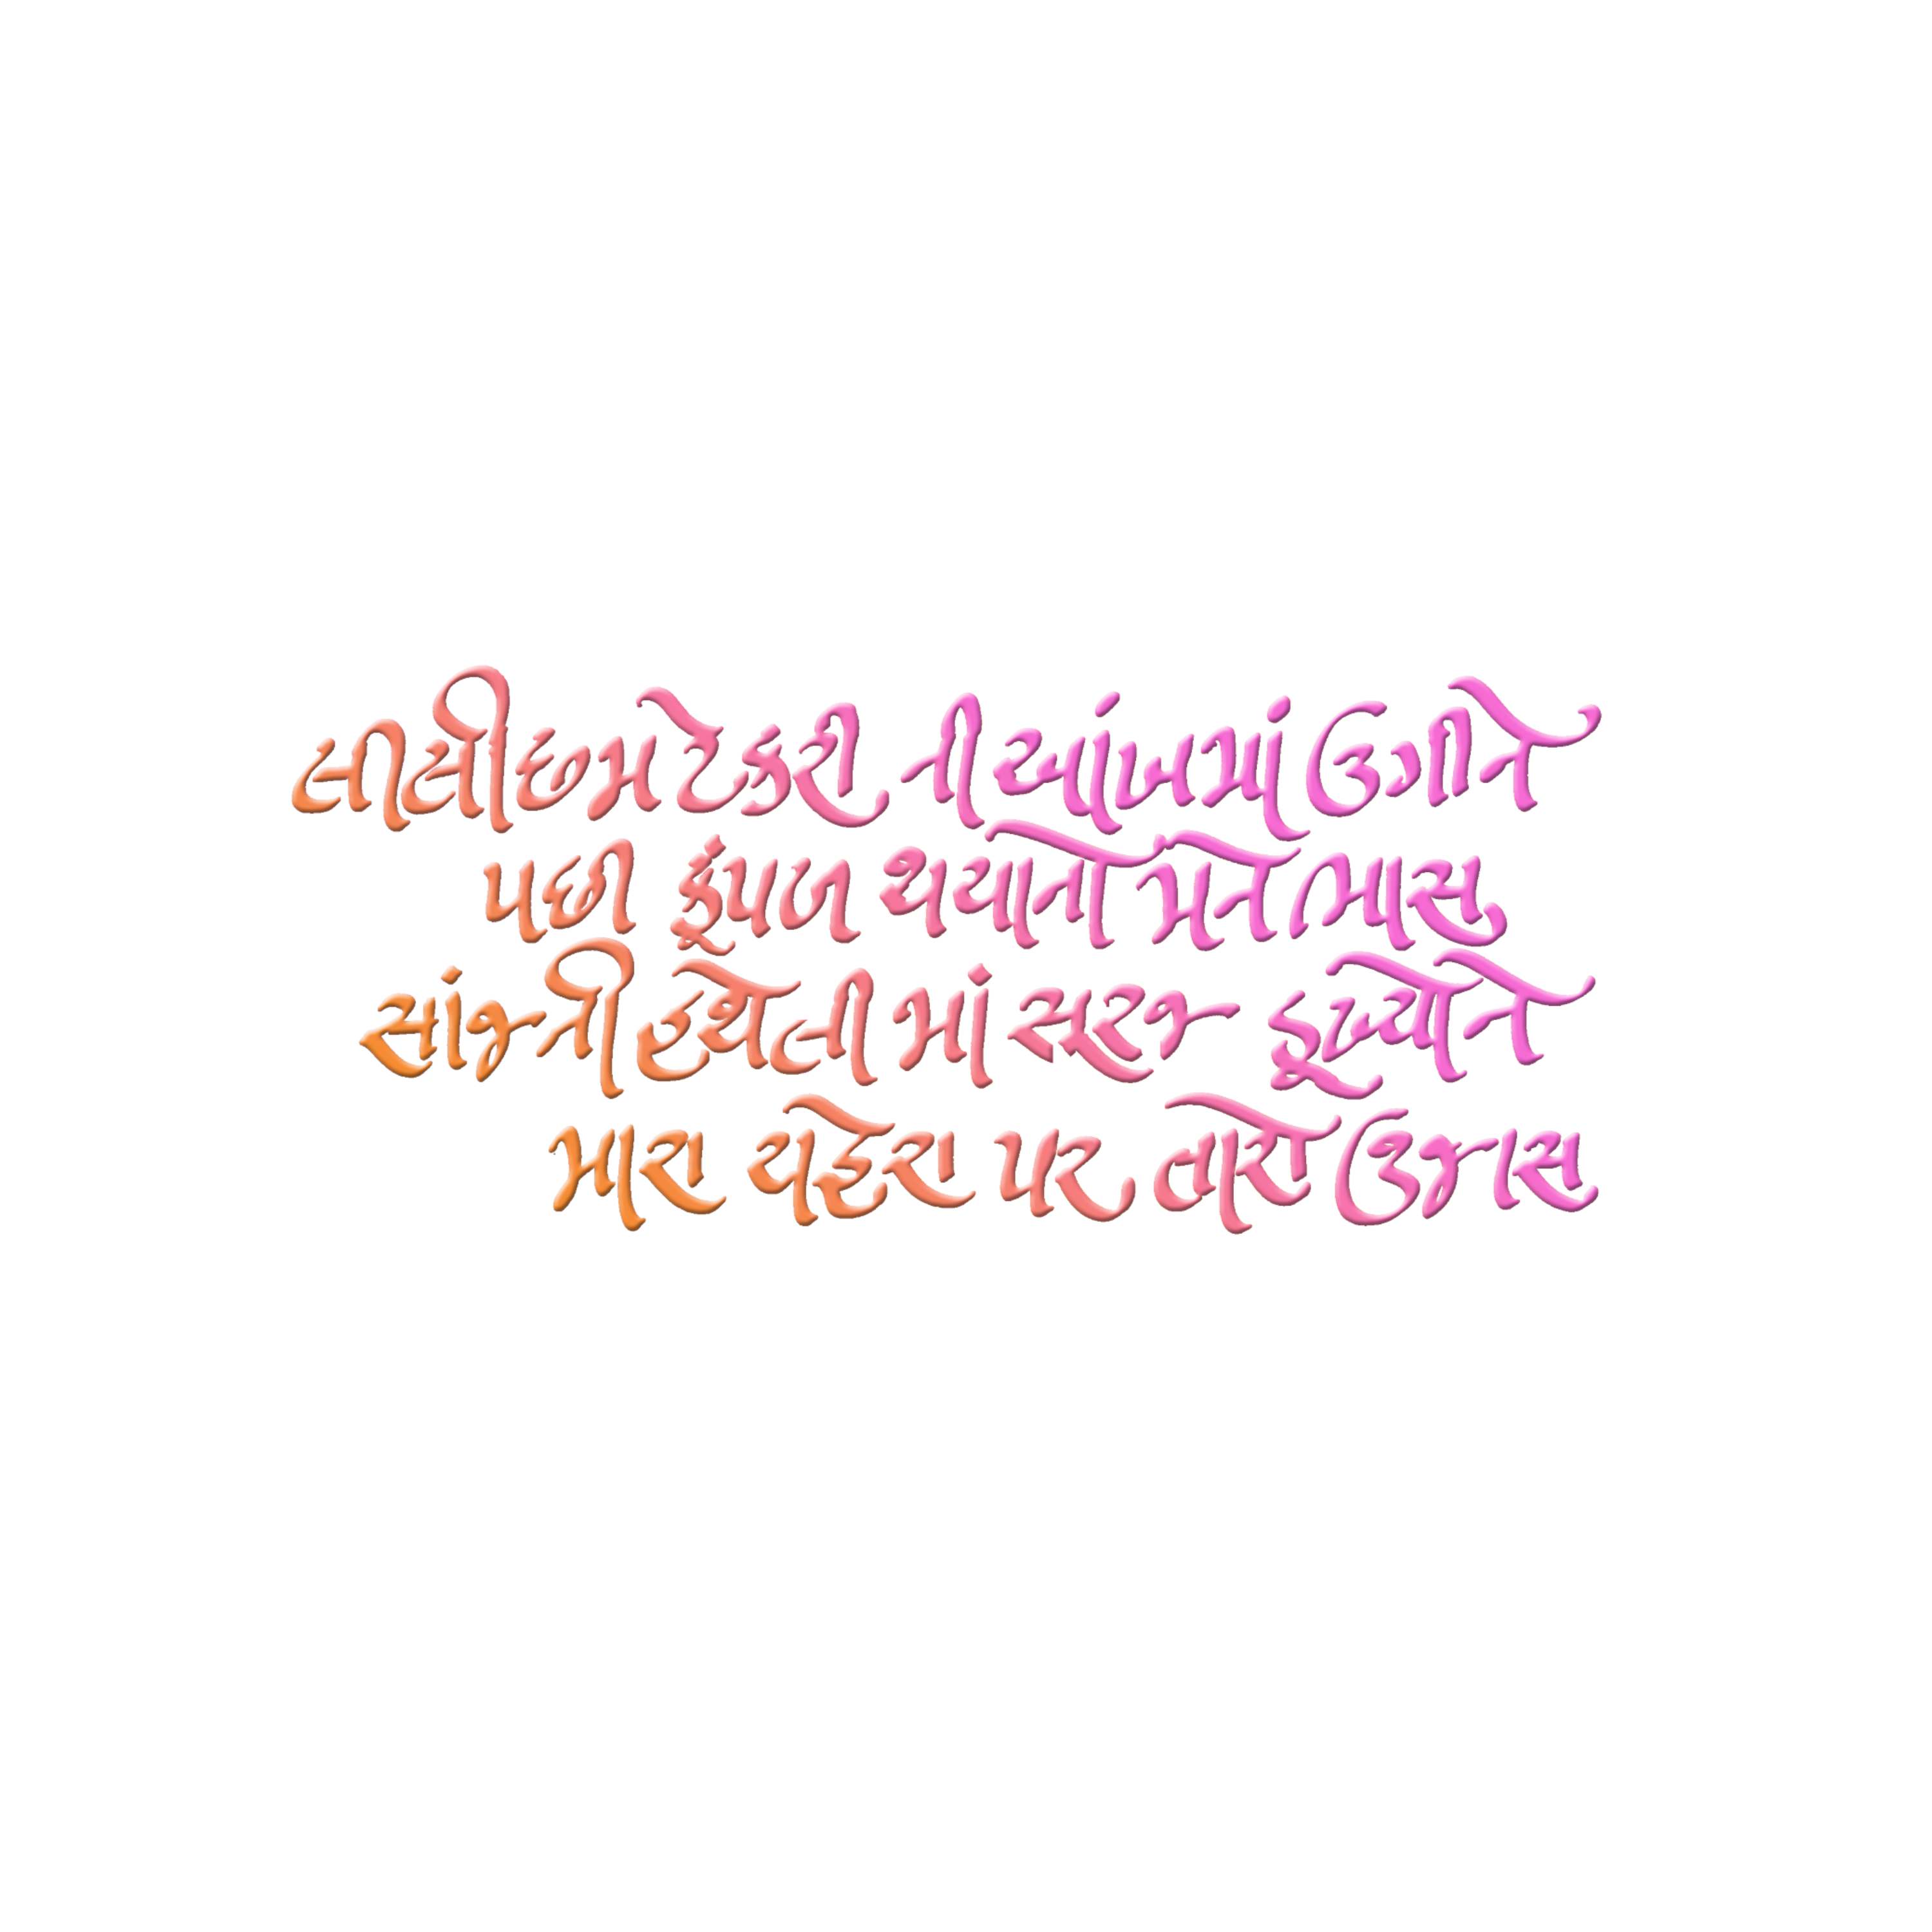 લીલીછમ ટેકરી ની આંખમાં ઉગીને
પછી કૂંપળ થયાનો મને ભાસ
સાંજની હથેલી માં સૂરજ ડૂબ્યોને
મારા ચહેરા પર તારો ઉજાસ